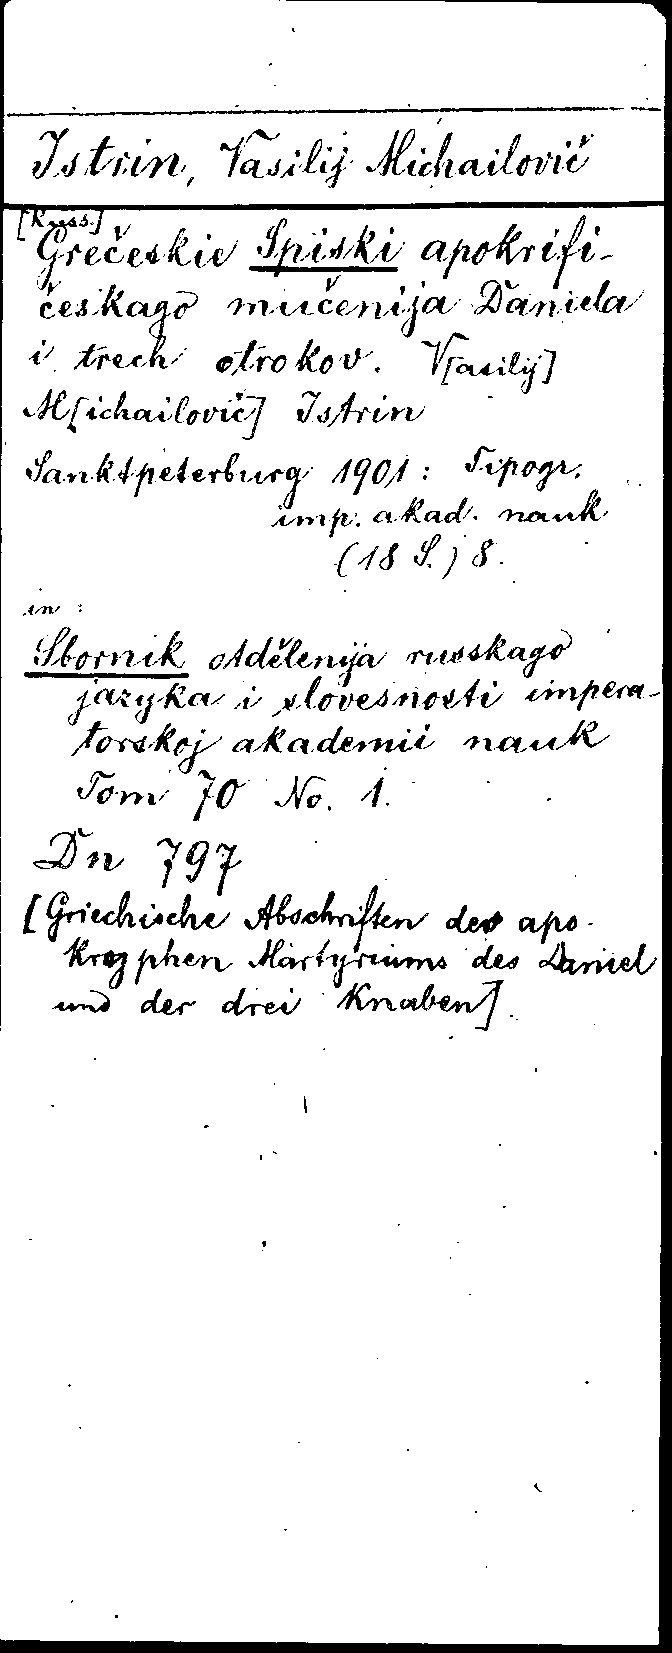 Istrin, Vasilij Michailovič
[Russ.]
Grečeskie Spiski apokrifi-
českago mučenija Daniela
i trech otrokov. V[asilij]
M[ichailovič] Istrin
Sanktpeterburg 1901: Tipogr.
imp. akad. nauk
(18 S.) 8.
in:
Sbornik otdělenija russkago
jazyka i slovesnosti impera-
torskoj akademii nauk
Tom 70 No. 1.
Dn 797
[Griechische Abschriften des apo-
kryphen Martyriums des Daniel
und der drei Knaben].